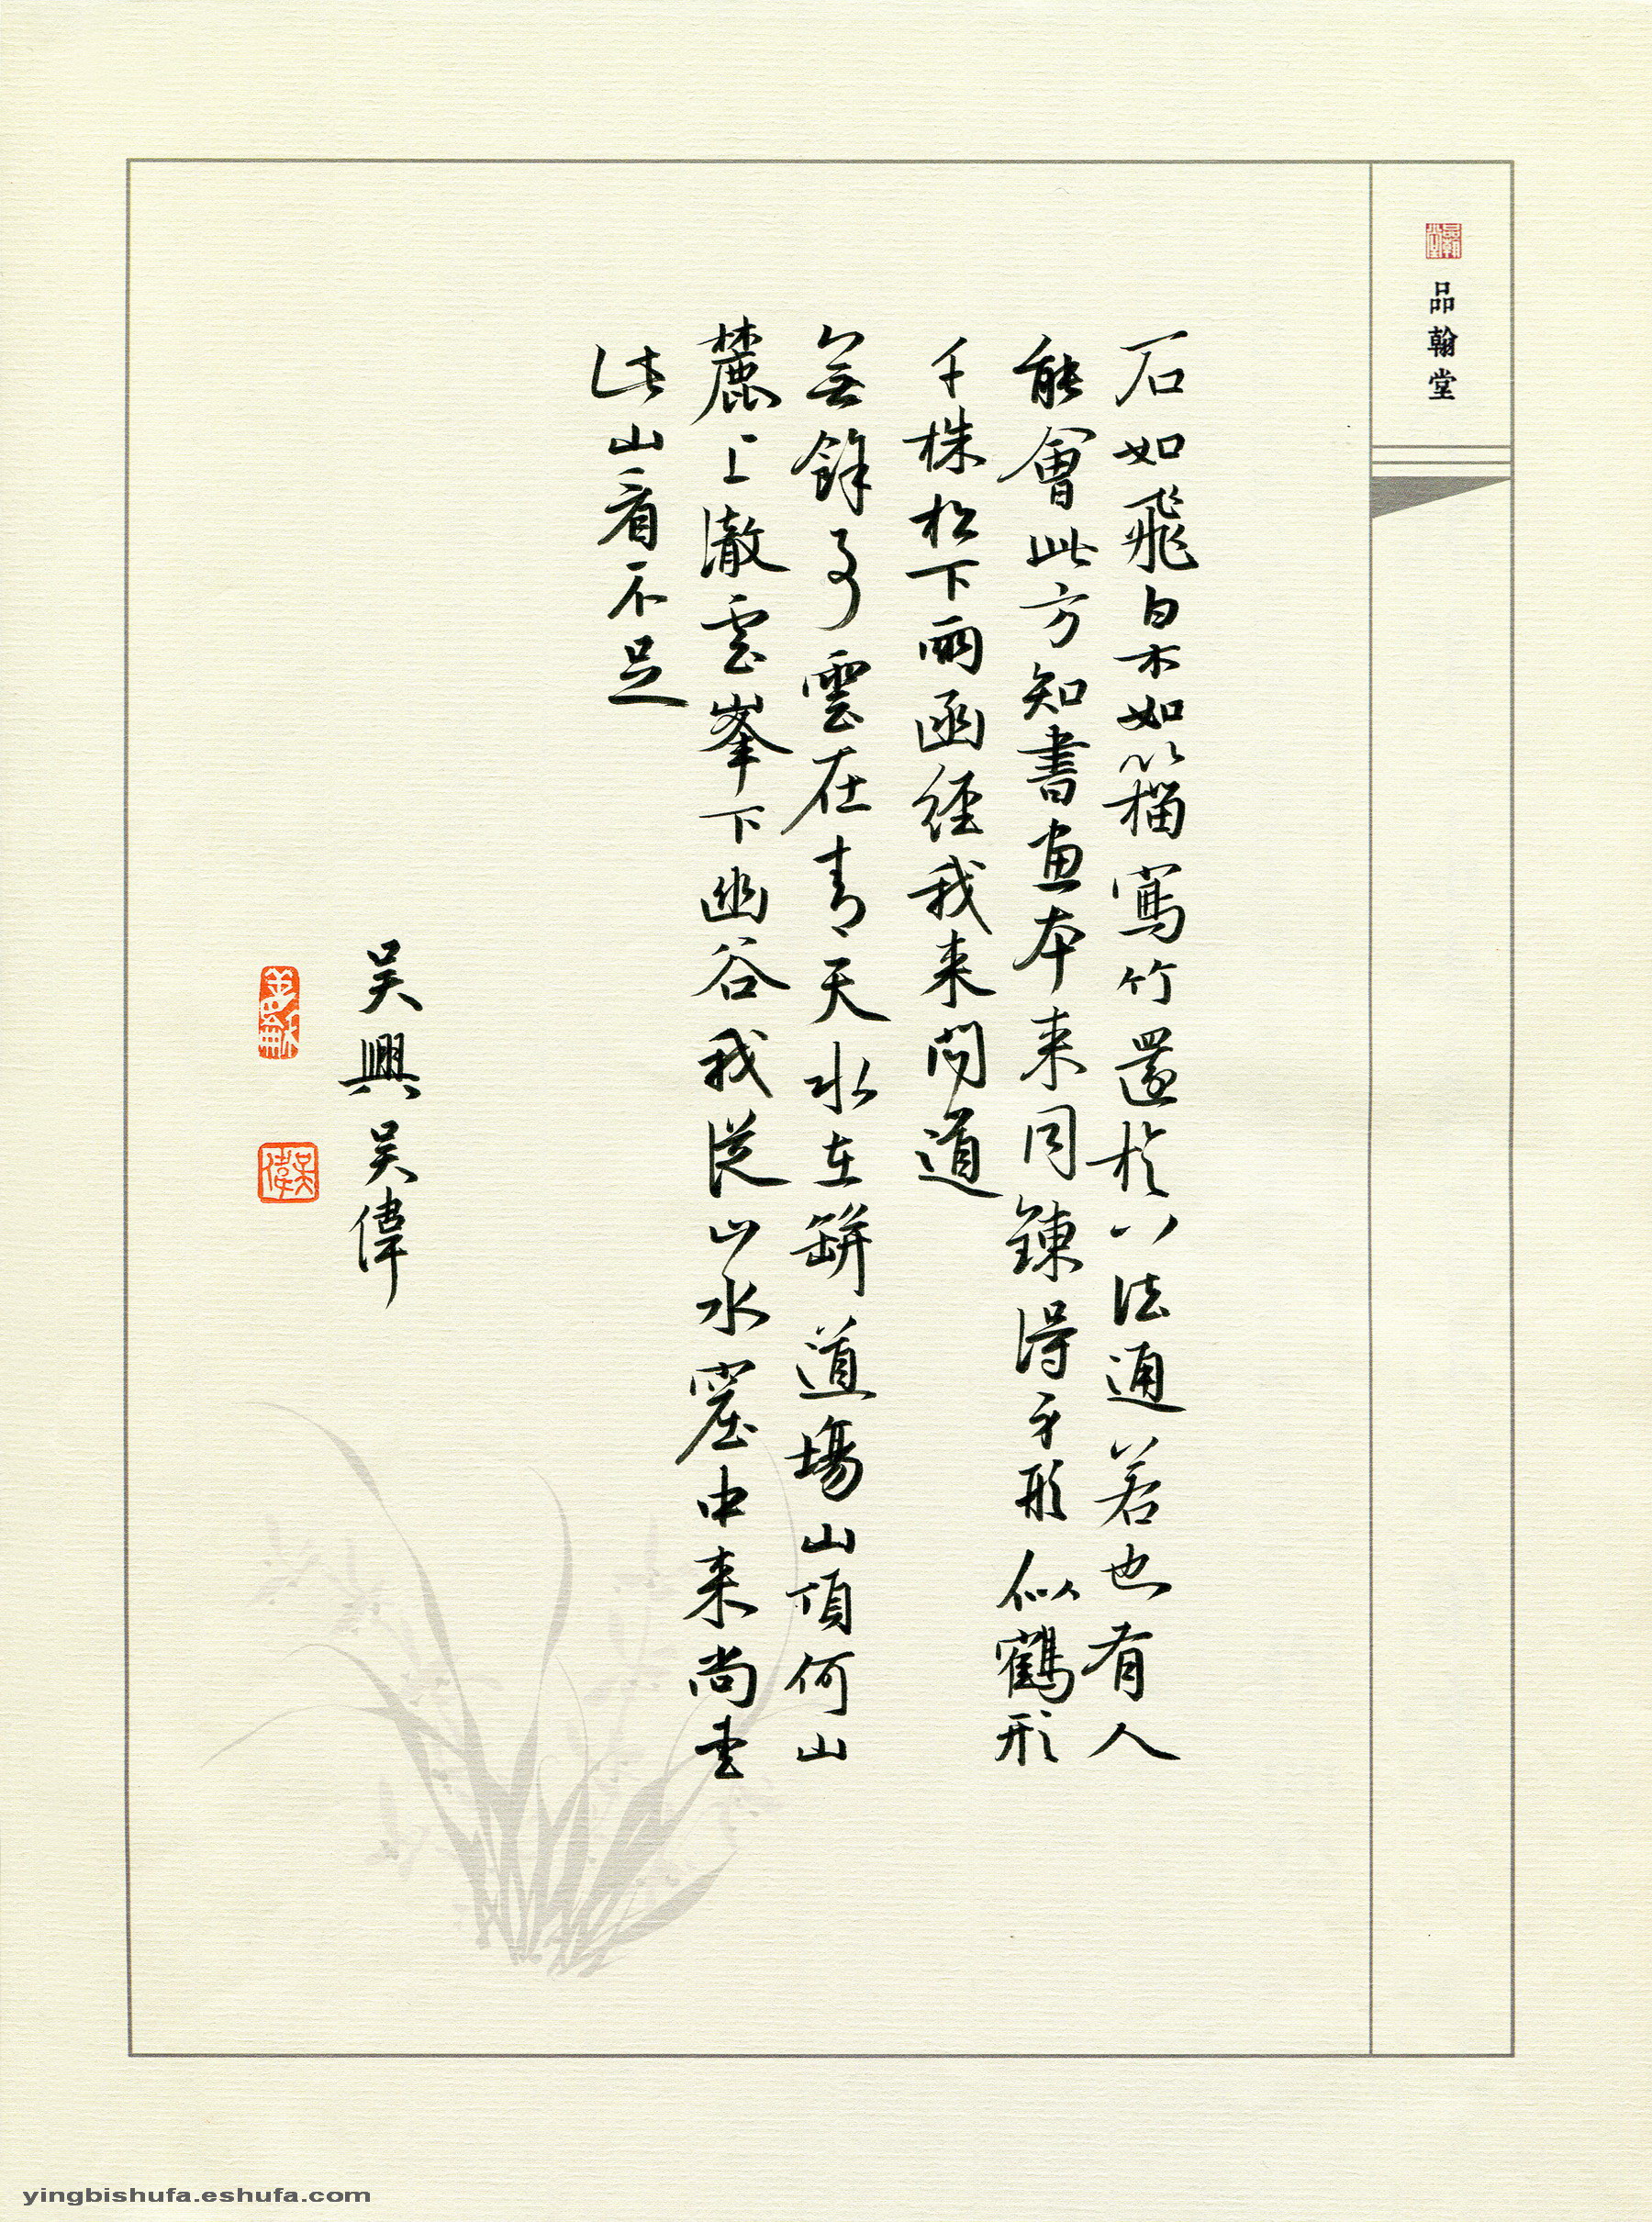 品翰堂
石如飛白木如籀寫竹還於八法通若也有人
能會此方知書畫本来同鍊得身形似鶴形
千株松下兩函經我来問道
無餘事雲在青天水在缾道場山頂何山
麓上澈雲峯下幽谷我從山水窟中来尚愛
此山看不足
吳興吳偉
吳偉
yingbishufa.eshufa.com